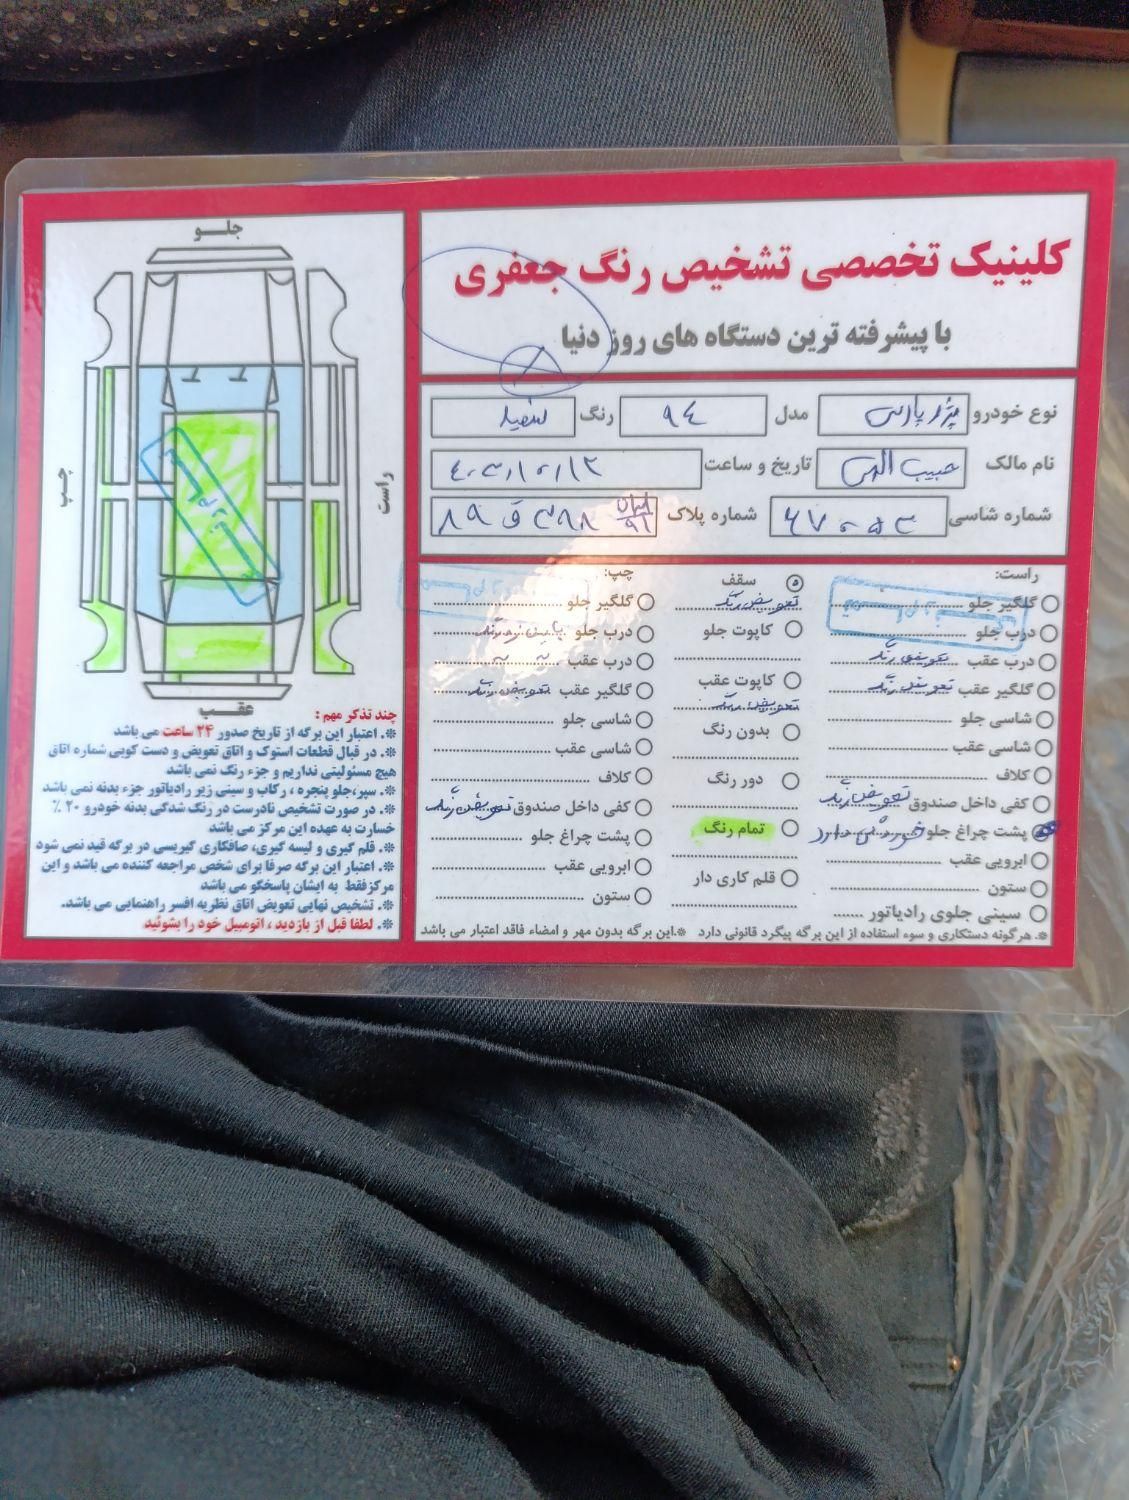 کلینیک تخصصی تشخیص رنگ جعفری
با پیشرفته ترین دستگاه های روز دنیا
نوع خودرو پژو پارس مدل ۹۴ رنگ سفید
نام مالک حبیب الهی تاریخ و ساعت
شماره شاسی ۶۷۰۰۵۳ شماره پلاک ۸۹ ق ۳۹۸ ایران ۹۱
راست:
گلگیر جلو
درب جلو
درب عقب تعویض رنگ
گلگیر عقب تعویض رنگ
شاسی جلو
شاسی عقب
کلاف
کفی داخل صندوق تعویض رنگ
پشت چراغ جلو خوردگی دارد
ابرویی عقب
ستون
سینی جلوی رادیاتور
سقف
تعویض رنگ
کاپوت جلو
کاپوت عقب
تعویض رنگ
بدون رنگ
دور رنگ
تمام رنگ
قلم کاری دار
چپ:
گلگیر جلو
درب جلو پایین زه رنگ
درب عقب
گلگیر عقب تعویض رنگ
شاسی جلو
شاسی عقب
کلاف
کفی داخل صندوق تعویض رنگ
پشت چراغ جلو
ابرویی عقب
ستون
*. هرگونه دستکاری و سوء استفاده از این برگه پیگرد قانونی دارد *.این برگه بدون مهر و امضاء فاقد اعتبار می باشد
جلــو
چپ
راست
عقـب
چند تذکر مهم :
*. اعتبار این برگه از تاریخ صدور ۲۴ ساعت می باشد
*. در قبال قطعات استوک و اتاق تعویض و دست کوبی شماره اتاق
هیچ مسئولیتی نداریم و جزء رنگ نمی باشد
*. سپر،جلو پنجره ، رکاب و سینی زیر رادیاتور جزء بدنه نمی باشد
*. در صورت تشخیص نادرست در رنگ شدگی بدنه خودرو ۲۰ ٪
خسارت به عهده این مرکز می باشد
*. قلم گیری و لیسه گیری، صافکاری گیریسی در برگه قید نمی شود
*. اعتبار این برگه صرفا برای شخص مراجعه کننده می باشد و این
مرکزفقط به ایشان پاسخگو می باشد
*. تشخیص نهایی تعویض اتاق نظریه افسر راهنمایی می باشد.
*. لطفا قبل از بازدید ، اتومبیل خود را بشوئید